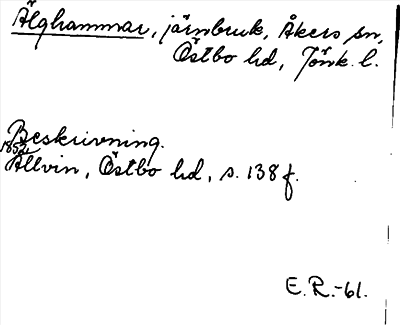 Älghammar, järnbruk, Åkers sn,
Östbo hd, Jönk. l.
Beskrivning.
1852
Allvin, Östbo hd, s. 138 f.
E.R.-61.